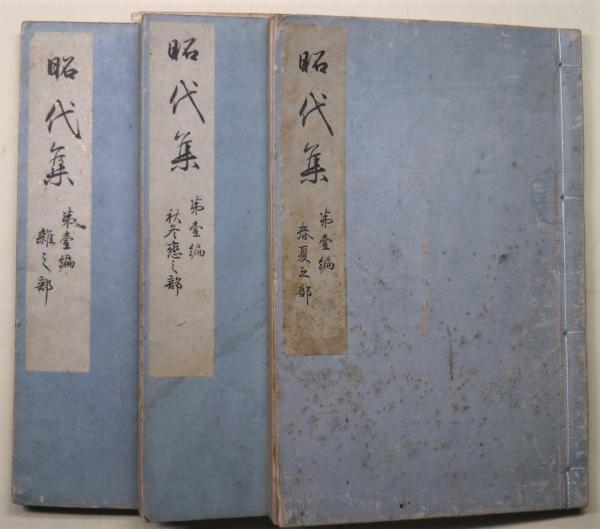 昭代集
第壹編
春夏之部
昭代集
第壹編
秋冬戀之部
昭代集
第壹編
雜之部